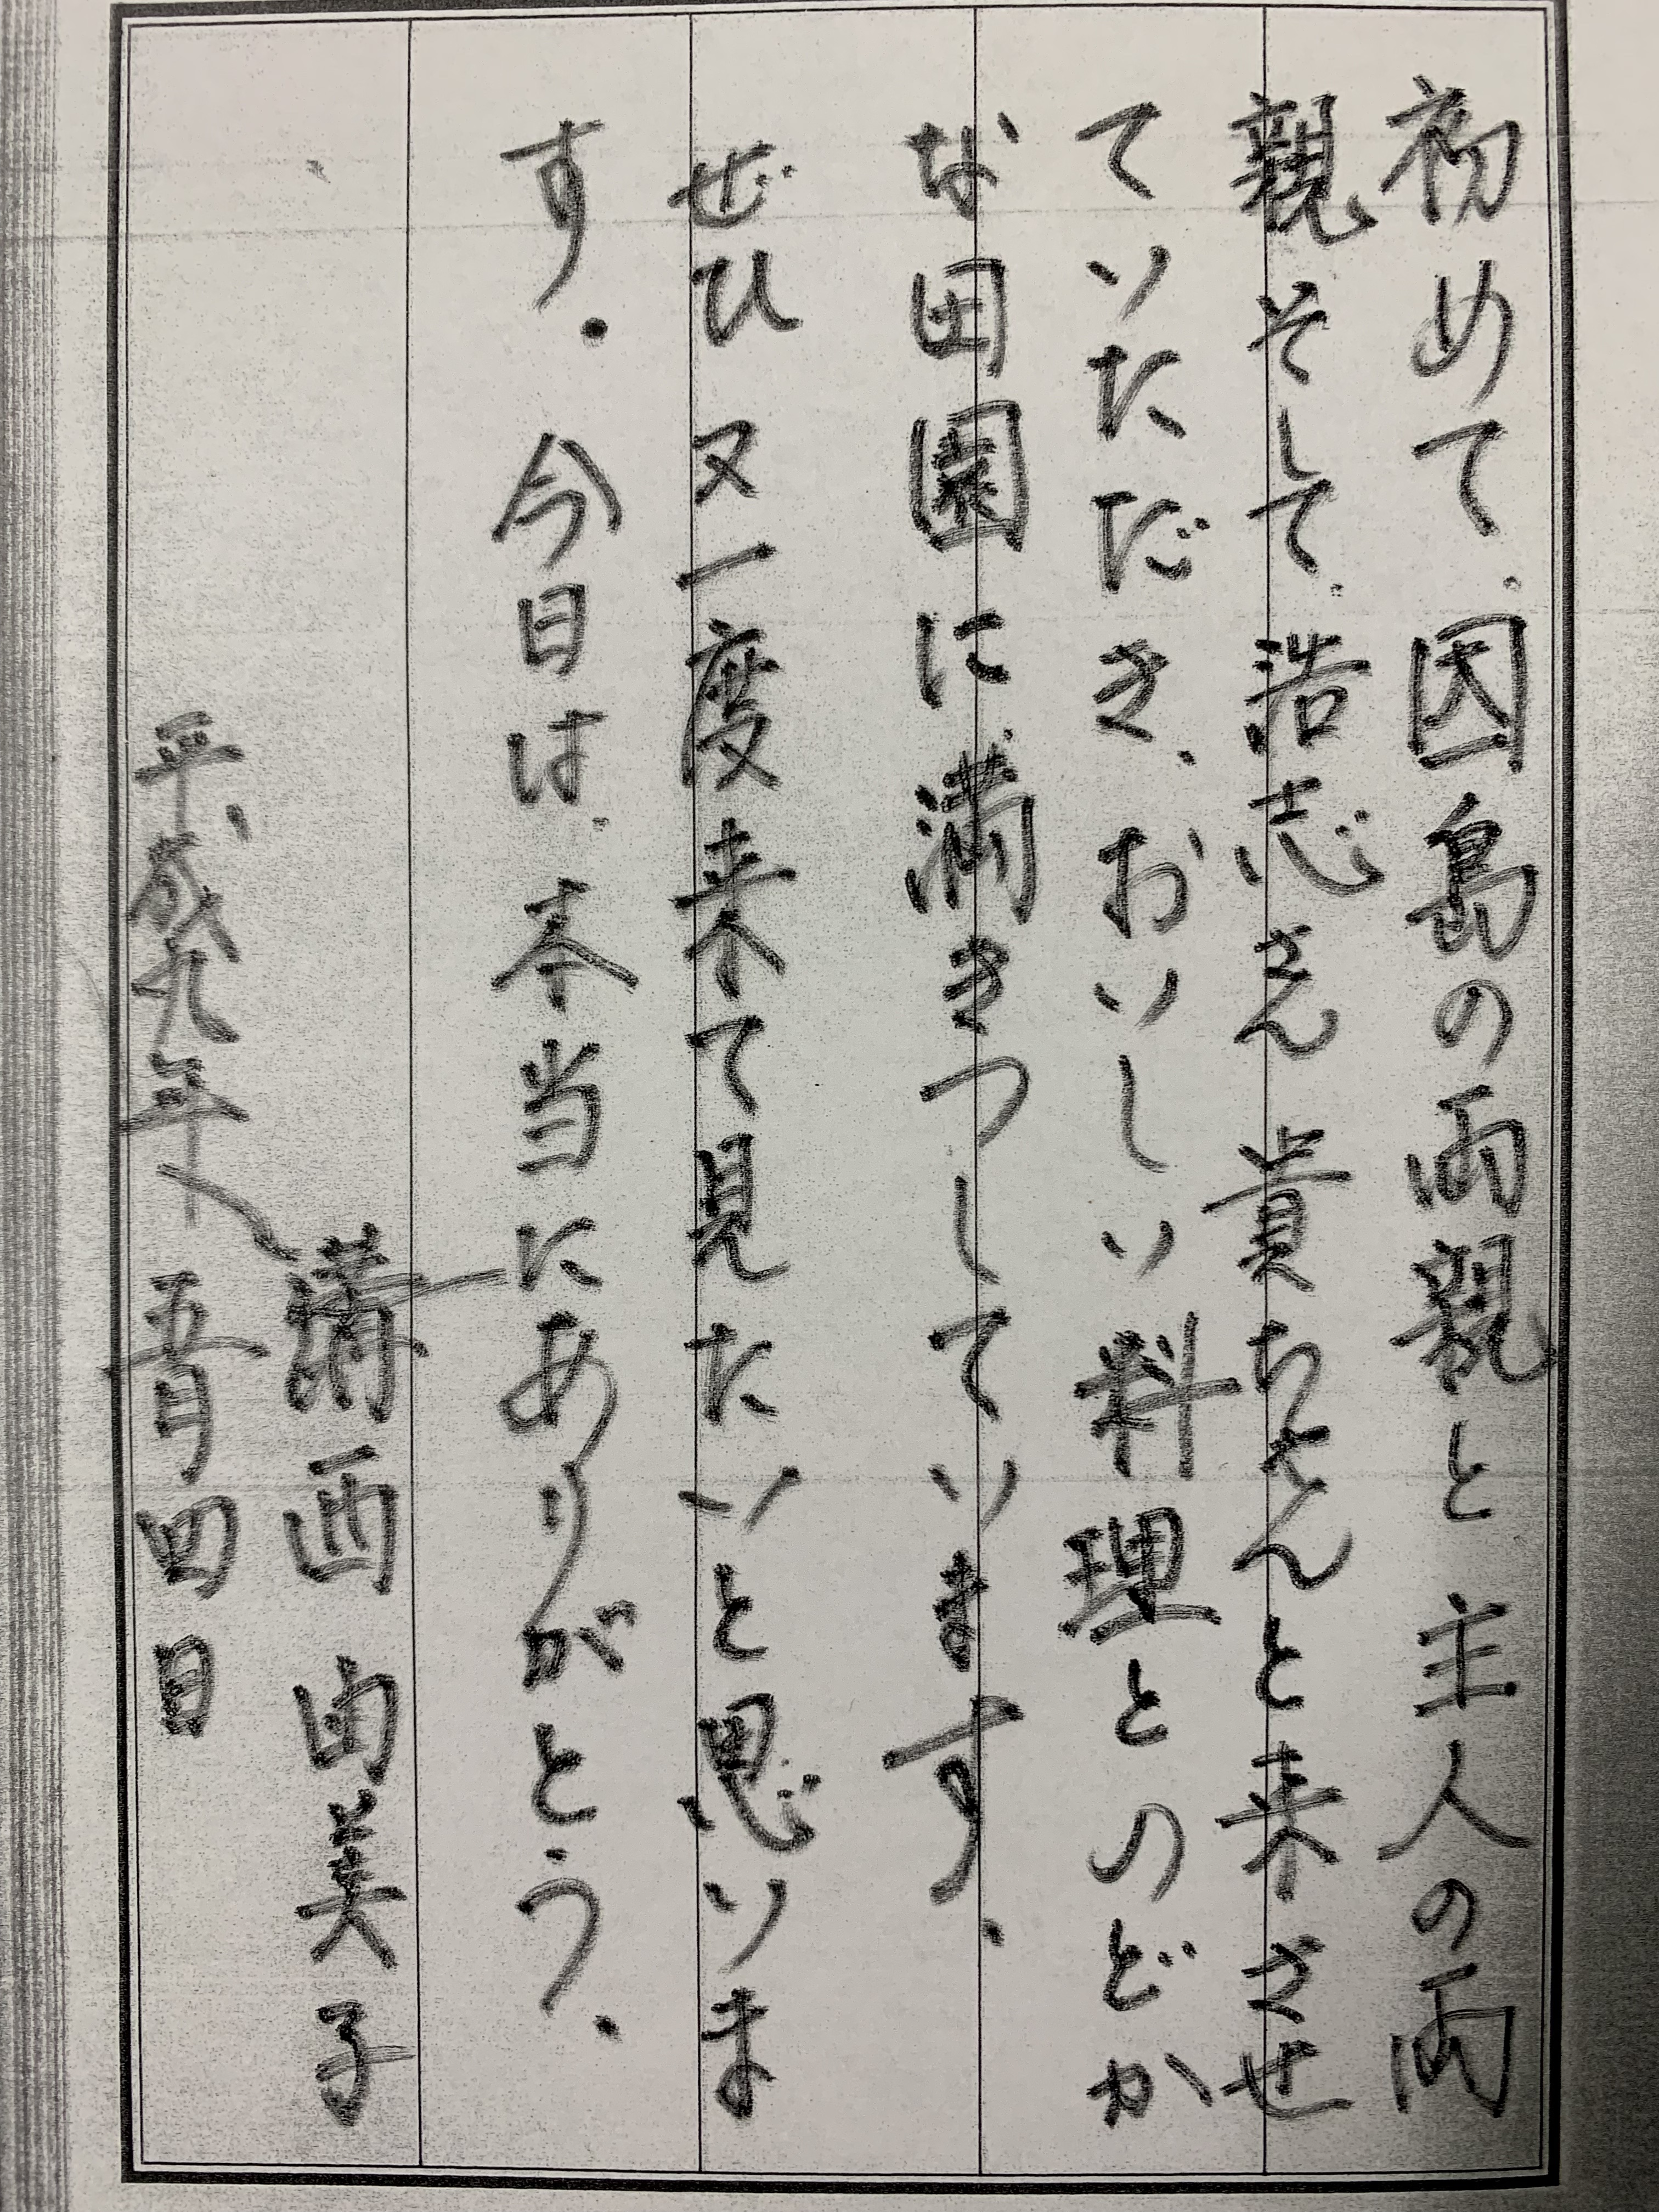 初めて、因島の両親と主人の両
親そして、浩志さん貴ちゃんと来させ
ていただき、おいしい料理とのどか
な田園に、満きつしています。
ぜひ又一度来て見たいと思いま
す。今日は、本当にありがとう。
溝西由美子
平成九年五月四日